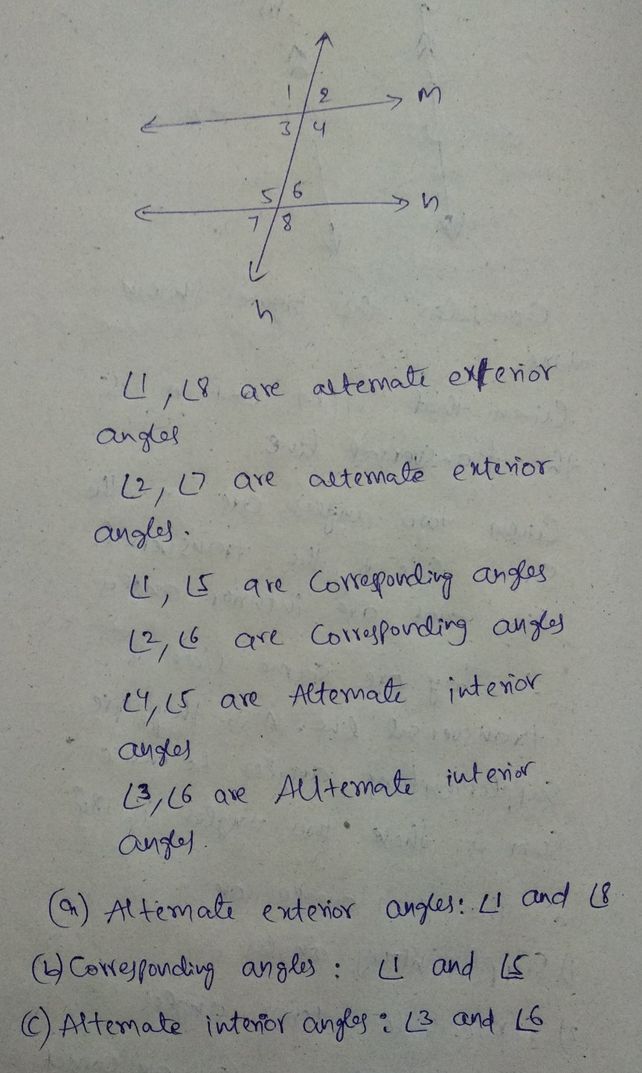 1 2 M
3 4
5 6 n
7 8
h
∠1, ∠8 are alternate exterior
angles
∠2, ∠7 are alternate exterior
angles.
∠1, ∠5 are Corresponding angles
∠2, ∠6 are Corresponding angles
∠4, ∠5 are Alternate interior
angles
∠3, ∠6 are Alternate interior.
angles.
(a) Alternate exterior angles: ∠1 and ∠8
(b) Corresponding angles: ∠1 and ∠5
(c) Alternate interior angles: ∠3 and ∠6